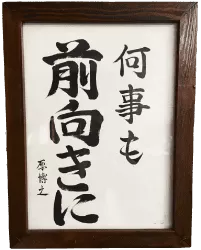 何事も
前向きに
原博之